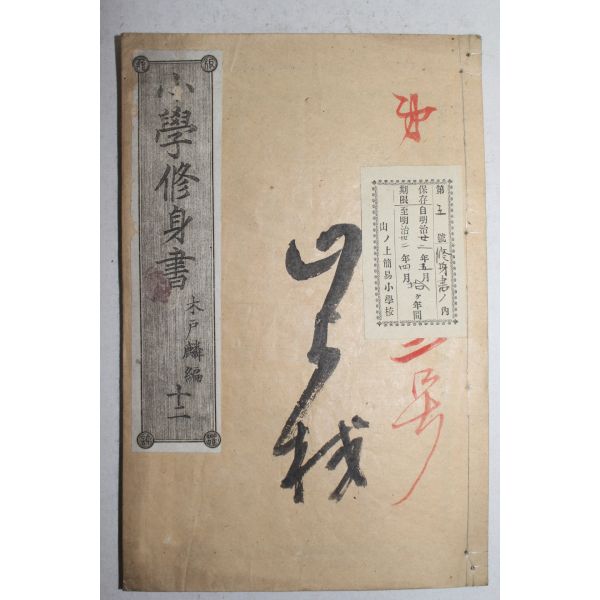 小學修身書
木戸麟編
十二
山上校
第
二号
第 號修身書ノ内
保存自明治廿二年五月
期限至明治卅二年四月
拾ヶ年間
山ノ上簡易小學校